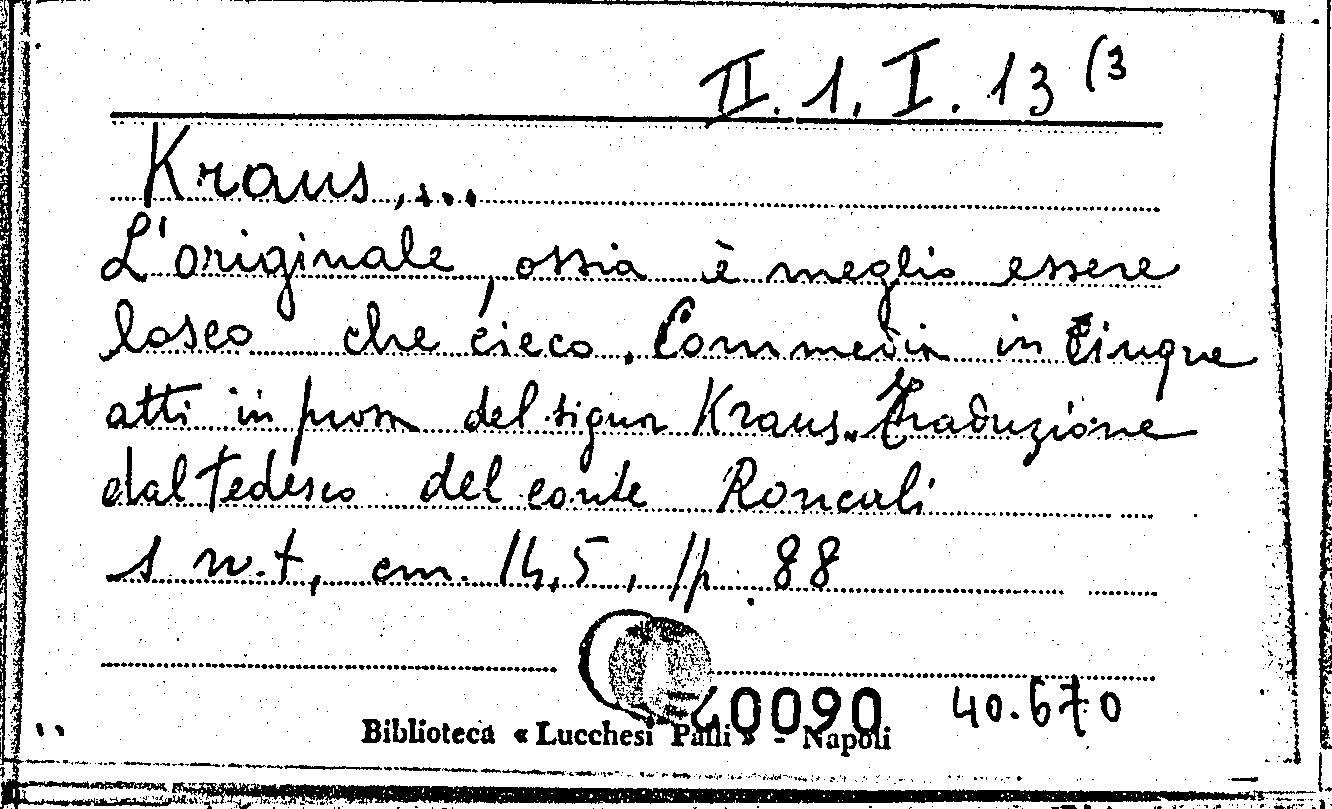 II. 1. I. 13 (3
Kraus, ...
L'originale, ossia è meglio essere
losco che cieco. Commedia in cinque
atti in prosa del signor Kraus. Traduzione
dal Tedesco del conte Roncali
s n.t, cm. 14,5, pp. 88
40090 40.670
Biblioteca « Lucchesi Palli » - Napoli